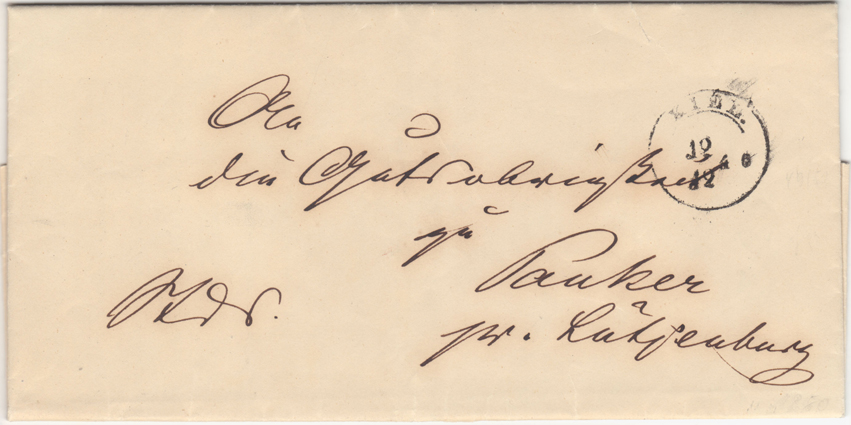 An
KIEL.
die Gutsobrigkeit
19
12
zu
Panker
pr. Lütjenburg